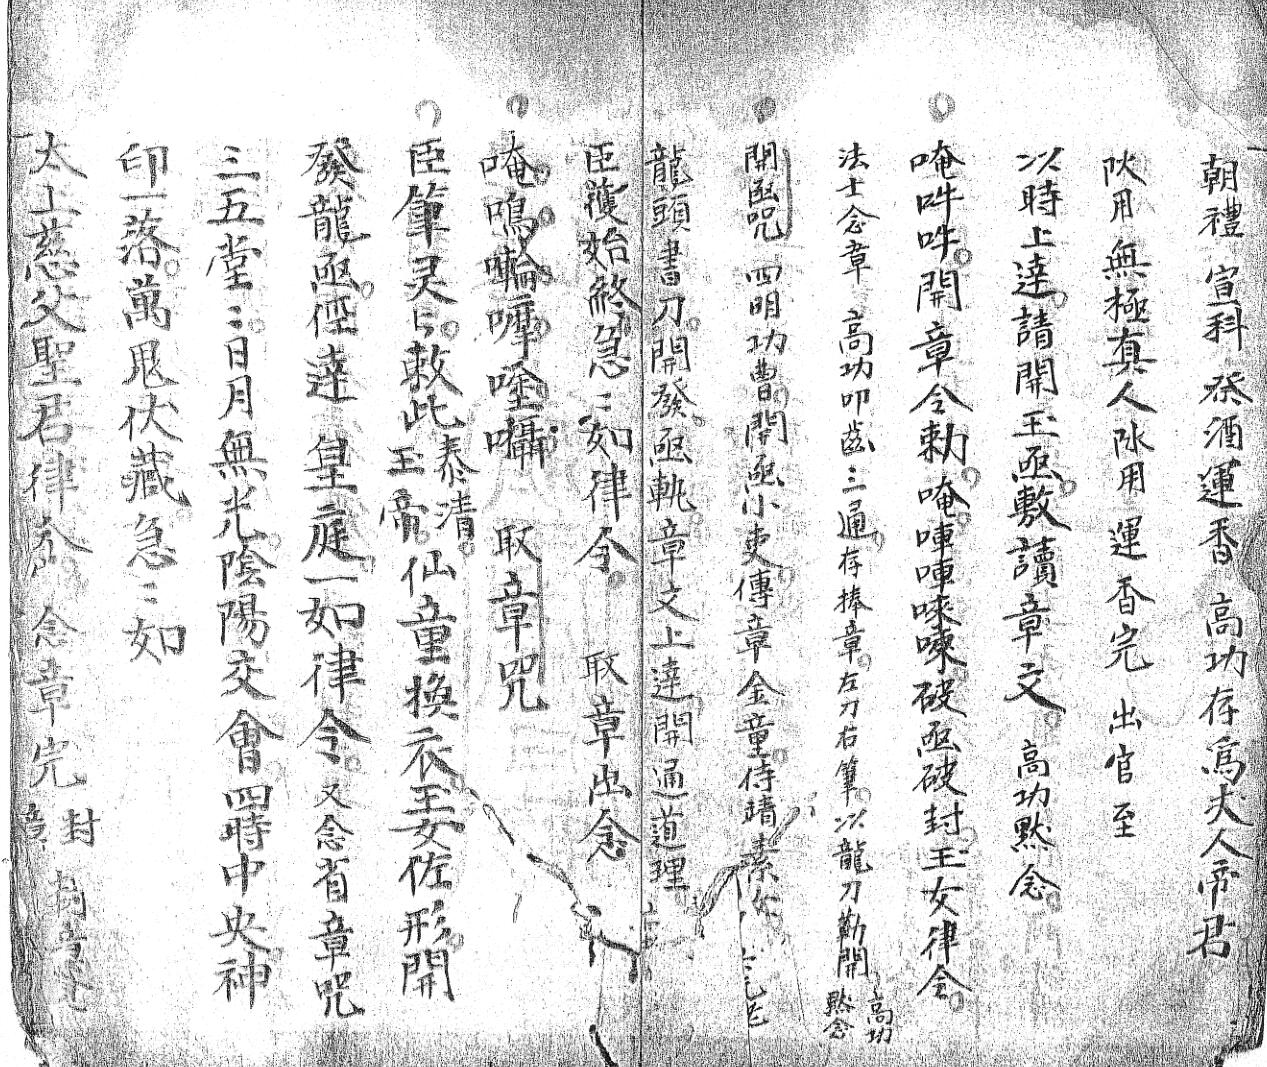 朝禮 宣科 祭酒運香 高功存爲大人帝君
陞用無極真人陞用運香完 出官至
以時上達請開玉函敷讀章文 高功默念
唵吽吽開章令勅唵𠹌𠹌㖶㖶破函破封玉女律令
法士念章 高功叩齒三通存捧章左刀右筆以龍刀勒開 高功默念
開函咒 四明功曹開函小吏傳章金童侍靖素
龍頭書刀開發函軌章文上達開通道理
臣獲始終急〻如律令 取章出念
唵鳴囉嚩 取章咒
臣筆灵〻敕此泰清玉帝仙童換衣玉女佐形開
發龍函徑達 皇庭一如律令 又念省章咒
三五堂〻日月無光陰陽交會四時中央神
印一落萬鬼伏藏急〻如
太上慈父聖君律令 念章完 封章